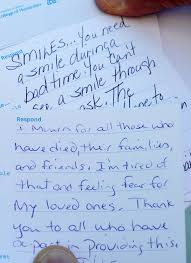 Respond
SMILES... You need
a smile during a
bad time. You can't
see a smile through
ask. The
Respond
I Mourn for all those who
have died, their families,
and friends. I'm tired of
that and feeling fear for
My loved ones. Thank
you to all who have
part in providing this.